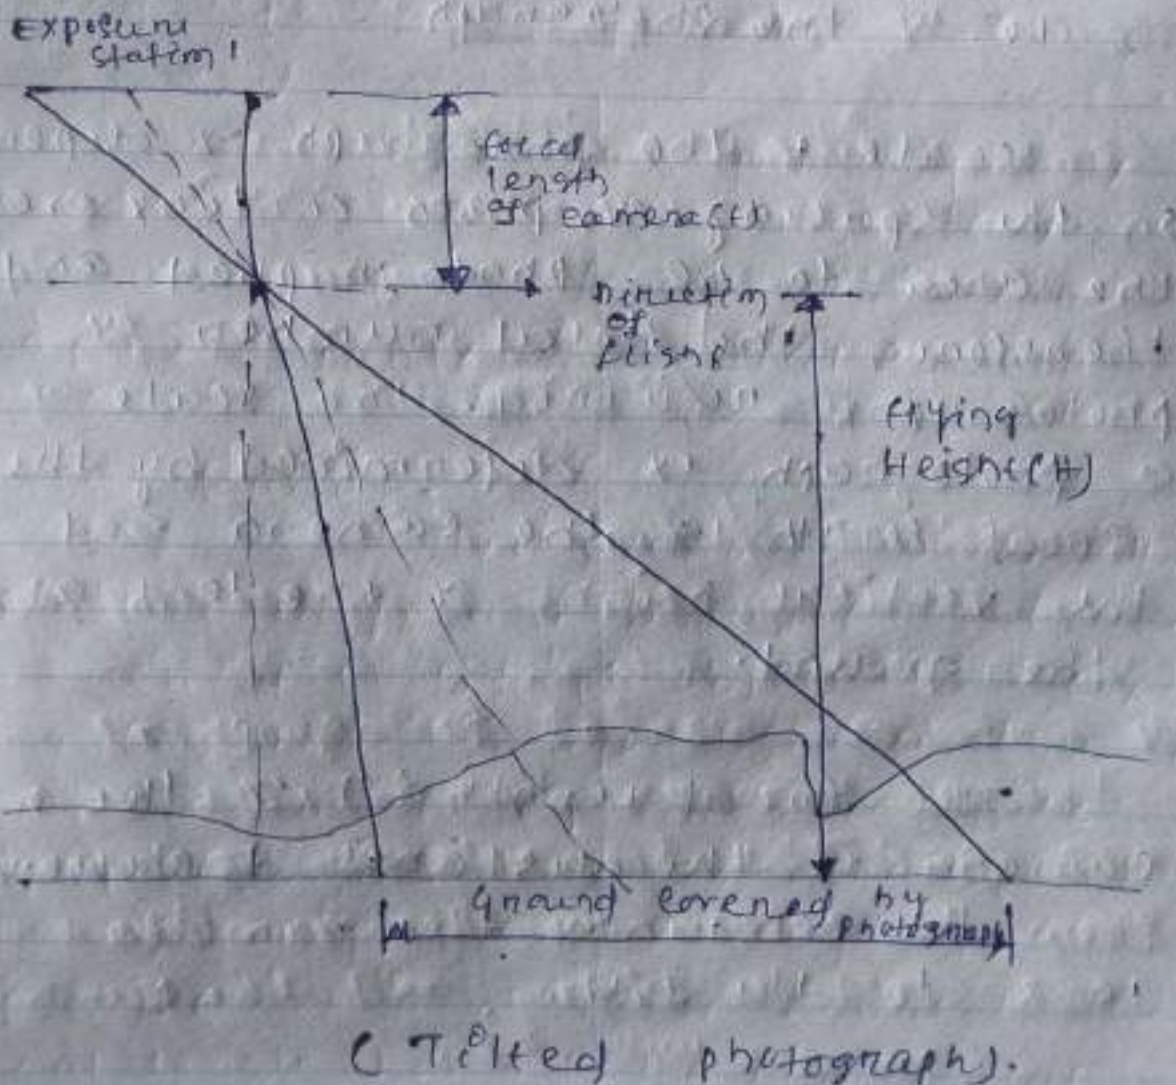 Exposure
Station 1
focal
length
of camera (f)
Direction
of
flight
Flying
Height (H)
Ground covered by
photograph
( Tilted photograph).